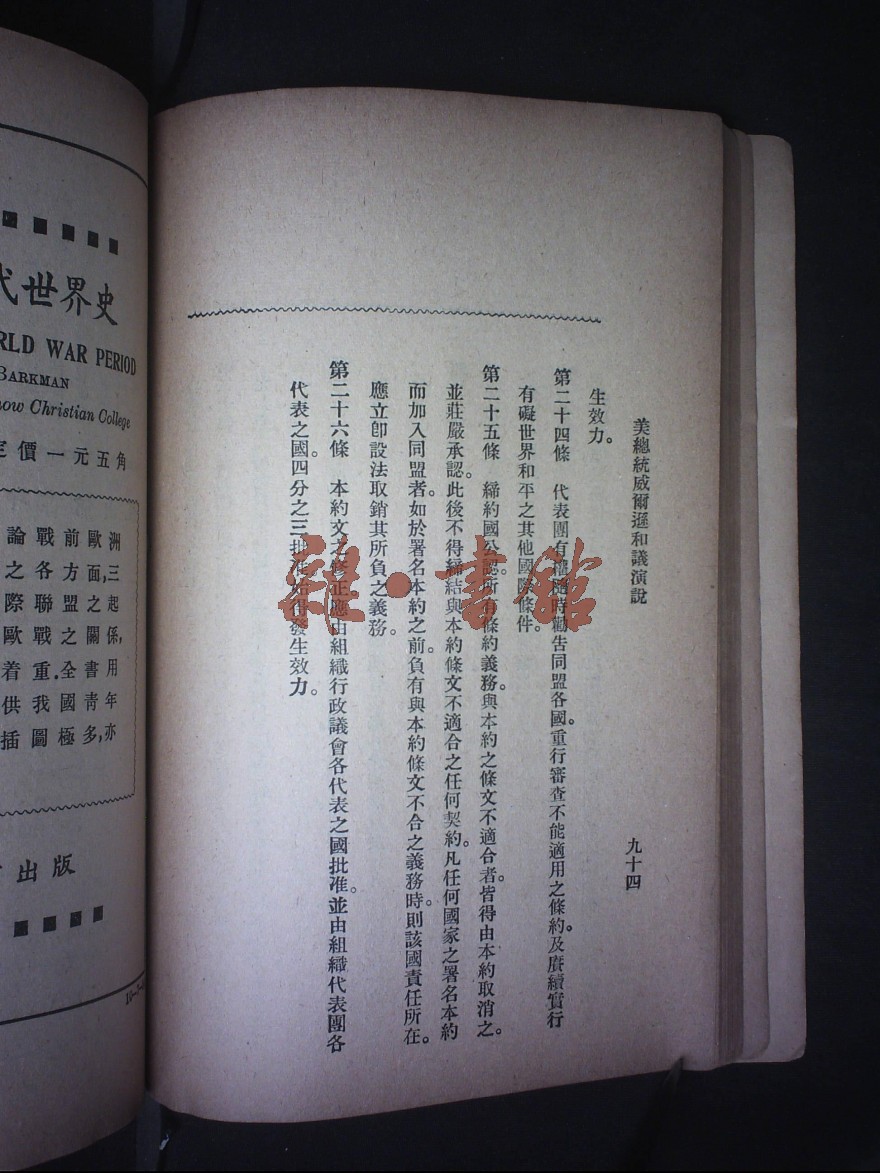 美總統威爾遜和議演說
九十四
生效力。
第二十四條　代表團有權隨時勸告同盟各國。重行審查不能適用之條約。及賡續實行
有礙世界和平之其他國際條件。
第二十五條　締約國公認所有條約義務。與本約之條文不適合者。皆得由本約取消之。
並莊嚴承認。此後不得締結與本約條文不適合之任何契約。凡任何國家之署名本約
而加入同盟者。如於署名本約之前。負有與本約條文不合之義務時。則該國責任所在。
應立卽設法取銷其所負之義務。
第二十六條　本約文之修正應由組織行政議會各代表之國批准。並由組織代表團各
代表之國。四分之三批准。始得發生效力。
雜·書館
代世界史
RLD WAR PERIOD
BARKMAN
now Christian College
定價一元五角
論戰前歐洲
之各方面,三
際聯盟之起
歐戰之關係,
着重.全書用
供我國靑年
插圖極多,亦
出版